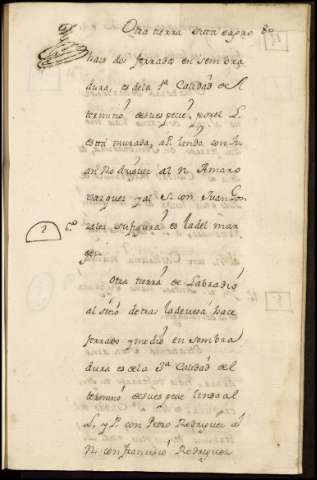 Otra tierra sitta dho 80
hace dos ferrados en sembra
dura, es dela 1ª Calidad del
termino desuespecie, por el L.
está murada, al P. linda con Ju
an Rodriguez al N. Amaro
vazquez y al S. con Juan Gon
zalez sufigura es la del mar
gen.
Otra tierra de Labradio
al sitio detras hace
ferrado y medio en sembra
dura es dela 3ª Calidad del
termino desuespecie linda al
L. y P. con Pedro Rodriguez al
N. con Francisco Rodriguez